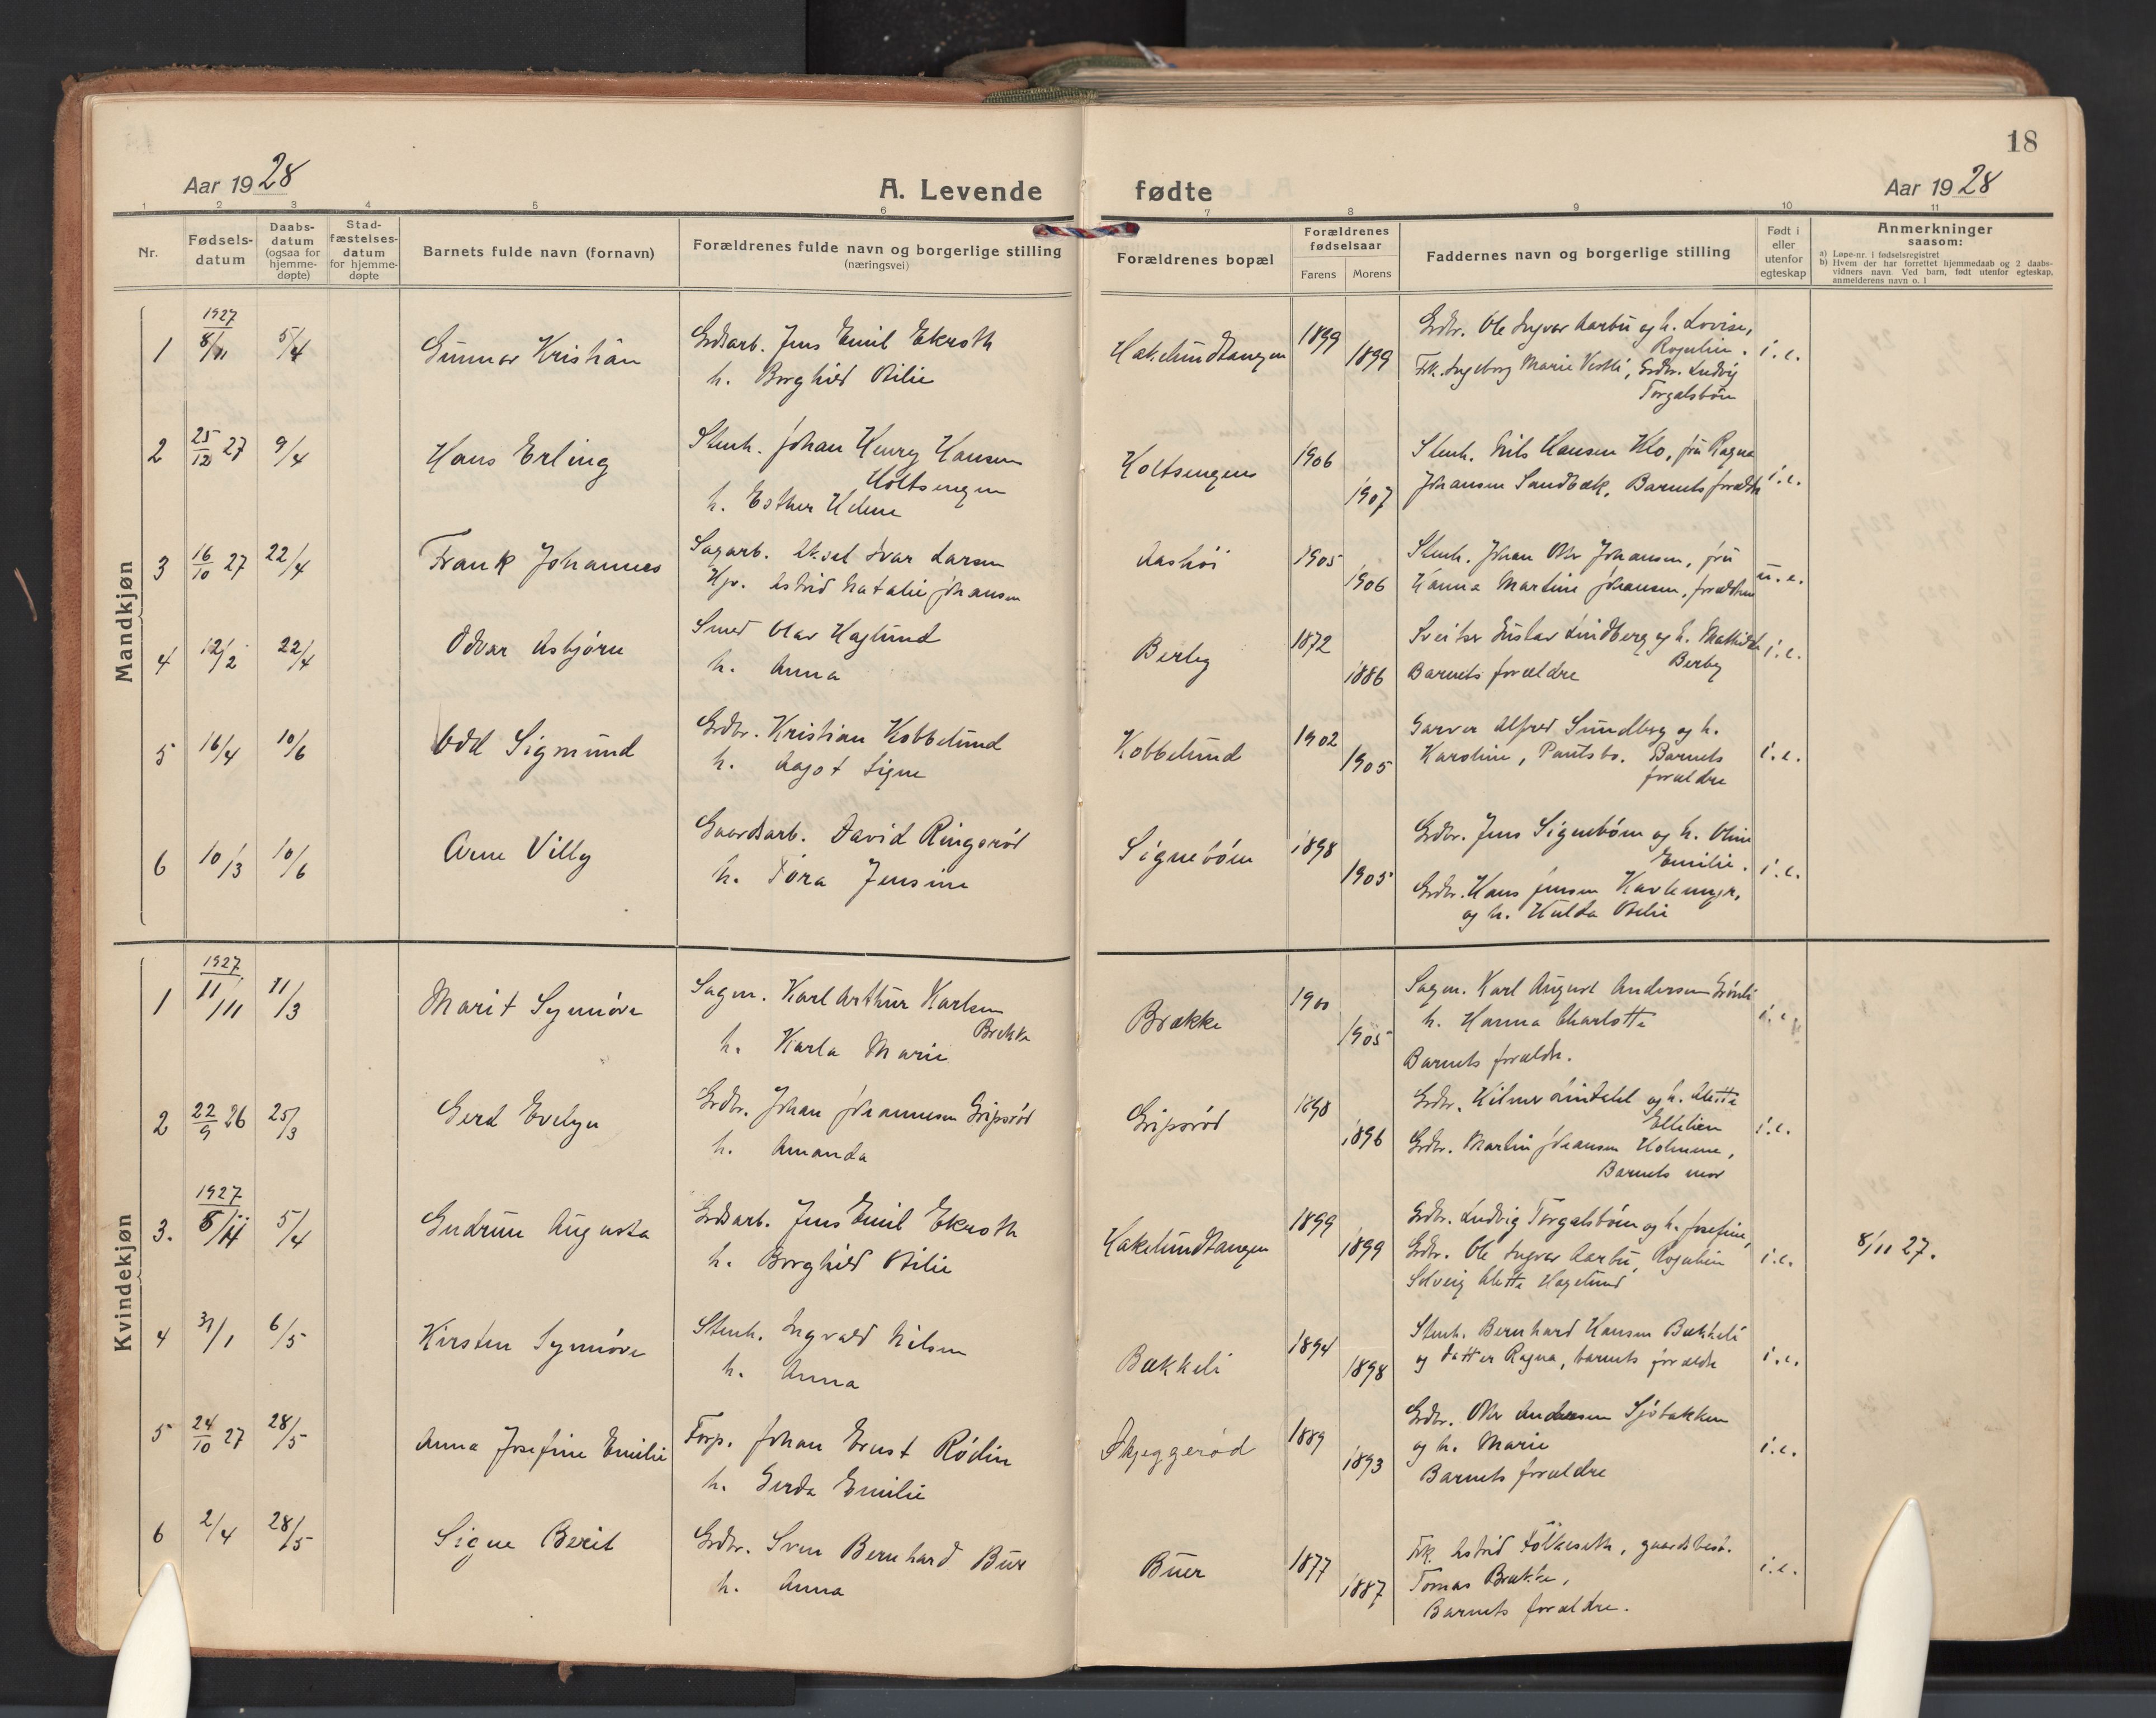 18
Aar 1928
A. Levende fødte
Aar 1928
1 2 3 4 5 6 7 8 9 10 11
Nr.
Fødsels-
datum
Daabs-
datum
(ogsaa for
hjemme-
døpte)
Stad-
fæstelses-
datum
for hjemme-
døpte
Barnets fulde navn (fornavn)
Forældrenes fulde navn og borgerlige stilling
(næringsvei)
Forældrenes bopæl
Forældrenes
fødselsaar
Farens Morens
Faddernes navn og borgerlige stilling
Født i
eller
utenfor
egteskap
Anmerkninger
saasom:
a) Løpe-nr. i fødselsregistret
b) Hvem der har forrettet hjemmedaab og 2 daabs-
vidners navn. Ved barn, født utenfor egteskap,
anmelderens navn o. l
Mandkjøn
1 1927 8/11 5/4 Gunnar Kristian
Grdsarb. Jens Emil Ekroth
h. Borghild Otilie
Hakelundtangen 1899 1899
Grdbr. Ole Ingvar Aarbu og h. Lovise,
Rogulien.
Frk. Ingeborg Marie Vestli, Grdbr. Ludvig
Torgalsbøn
i.e.
2 25/12 27 9/4 Hans Erling
Stenh. Johan Henry Hansen
Holtsengen
h. Esther Helene
Holtsengen 1906 1907
Stenh. Nils Hansen Mo, fru Ragna
Johansen Sandbæk, Barnets forældre
i.e.
3 16/10 27 22/4 Frank Johannes
Sagarb. Aksel Ivar Larsen
Hjv. Astrid Natalie Johansen
Aashøi 1905 1906
Stenh. Johan Oskar Johansen, fru
Hanna Martine Johansen, forældrene
u.e.
4 12/2 22/4 Odvar Asbjørn
Smed Olav Haglund
h. Anna
Berby 1872 1886
Sveitser Gustav Lindberg og h. Mathilde
Berby
Barnets forældre
i.e.
5 16/4 10/6 Odd Sigmund
Grdbr. Kristian Kobbelund
h. Aagot Signe
Kobbelund 1902 1905
Garver Alfred Sundberg og h.
Karoline, Pautsbo. Barnets
forældre
i.e.
6 10/3 10/6 Arne Villy
Gaardsarb. David Ringsrød
h. Tora Jensine
Signebøen 1898 1905
Grdbr. Jens Signebøen og h. Oline
Emilie.
Grdbr. Hans Jensen Kavlemyr,
og h. Hulda Otilie
i.e.
Kvindekjøn
1 1927 11/11 11/3 Marit Synnøve
Sagm. Karl Arthur Karlsen
Brække
h. Karla Marie
Brække 1900 1905
Sagm. Karl August Andersen Grønli
h. Hanna Charlotte
Barnets forældre.
i.e.
2 22/9 26 25/3 Gerd Evelyn
Grdbr. Johan Johannesen Gripsrød
h. Amanda
Gripsrød 1898 1896
Grdbr. Hilmer Lintahl og h. Alette
Ellilien
Grdbr. Martin Johansen Holmene,
Barnets mor
i.e.
3. 1927 8/11 5/4 Gudrun Augusta
Grdsarb. Jens Emil Ekroth
h. Borghild Otilie
Hakelundtangen 1899 1899
Grdbr. Ludvig Torgalsbøn og h. Josefine,
Grdbr. Ole Ingvar Aarbu, Rogulien
Solveig Alette Hagelund
i.e.
8/11 27.
4 31/1 6/5 Kirsten Synnøve
Stenh. Ingvald Nilsen
h. Anna
Bækkeli 1894 1898
Stenh. Bernhard Hansen Bækkeli
og datter Ragna, barnets forældre
i.e.
5 24/10 27 28/5 Anna Josefine Emilie
Forp. Johan Ernst Rødin
h. Gerda Emilie
Skjeggerød 1889 1893
Grdbr. Oskar Andersen Sjøbakken
og h. Marie
Barnets forældre
i.e.
6 2/4 28/5 Signe Berit
Grdbr. Sven Bernhard Buer
h. Anna
Buer 1877 1887
Frk. Astrid Folkeseth, gaardbest.
Tomas Brække,
Barnets forældre.
i.e.